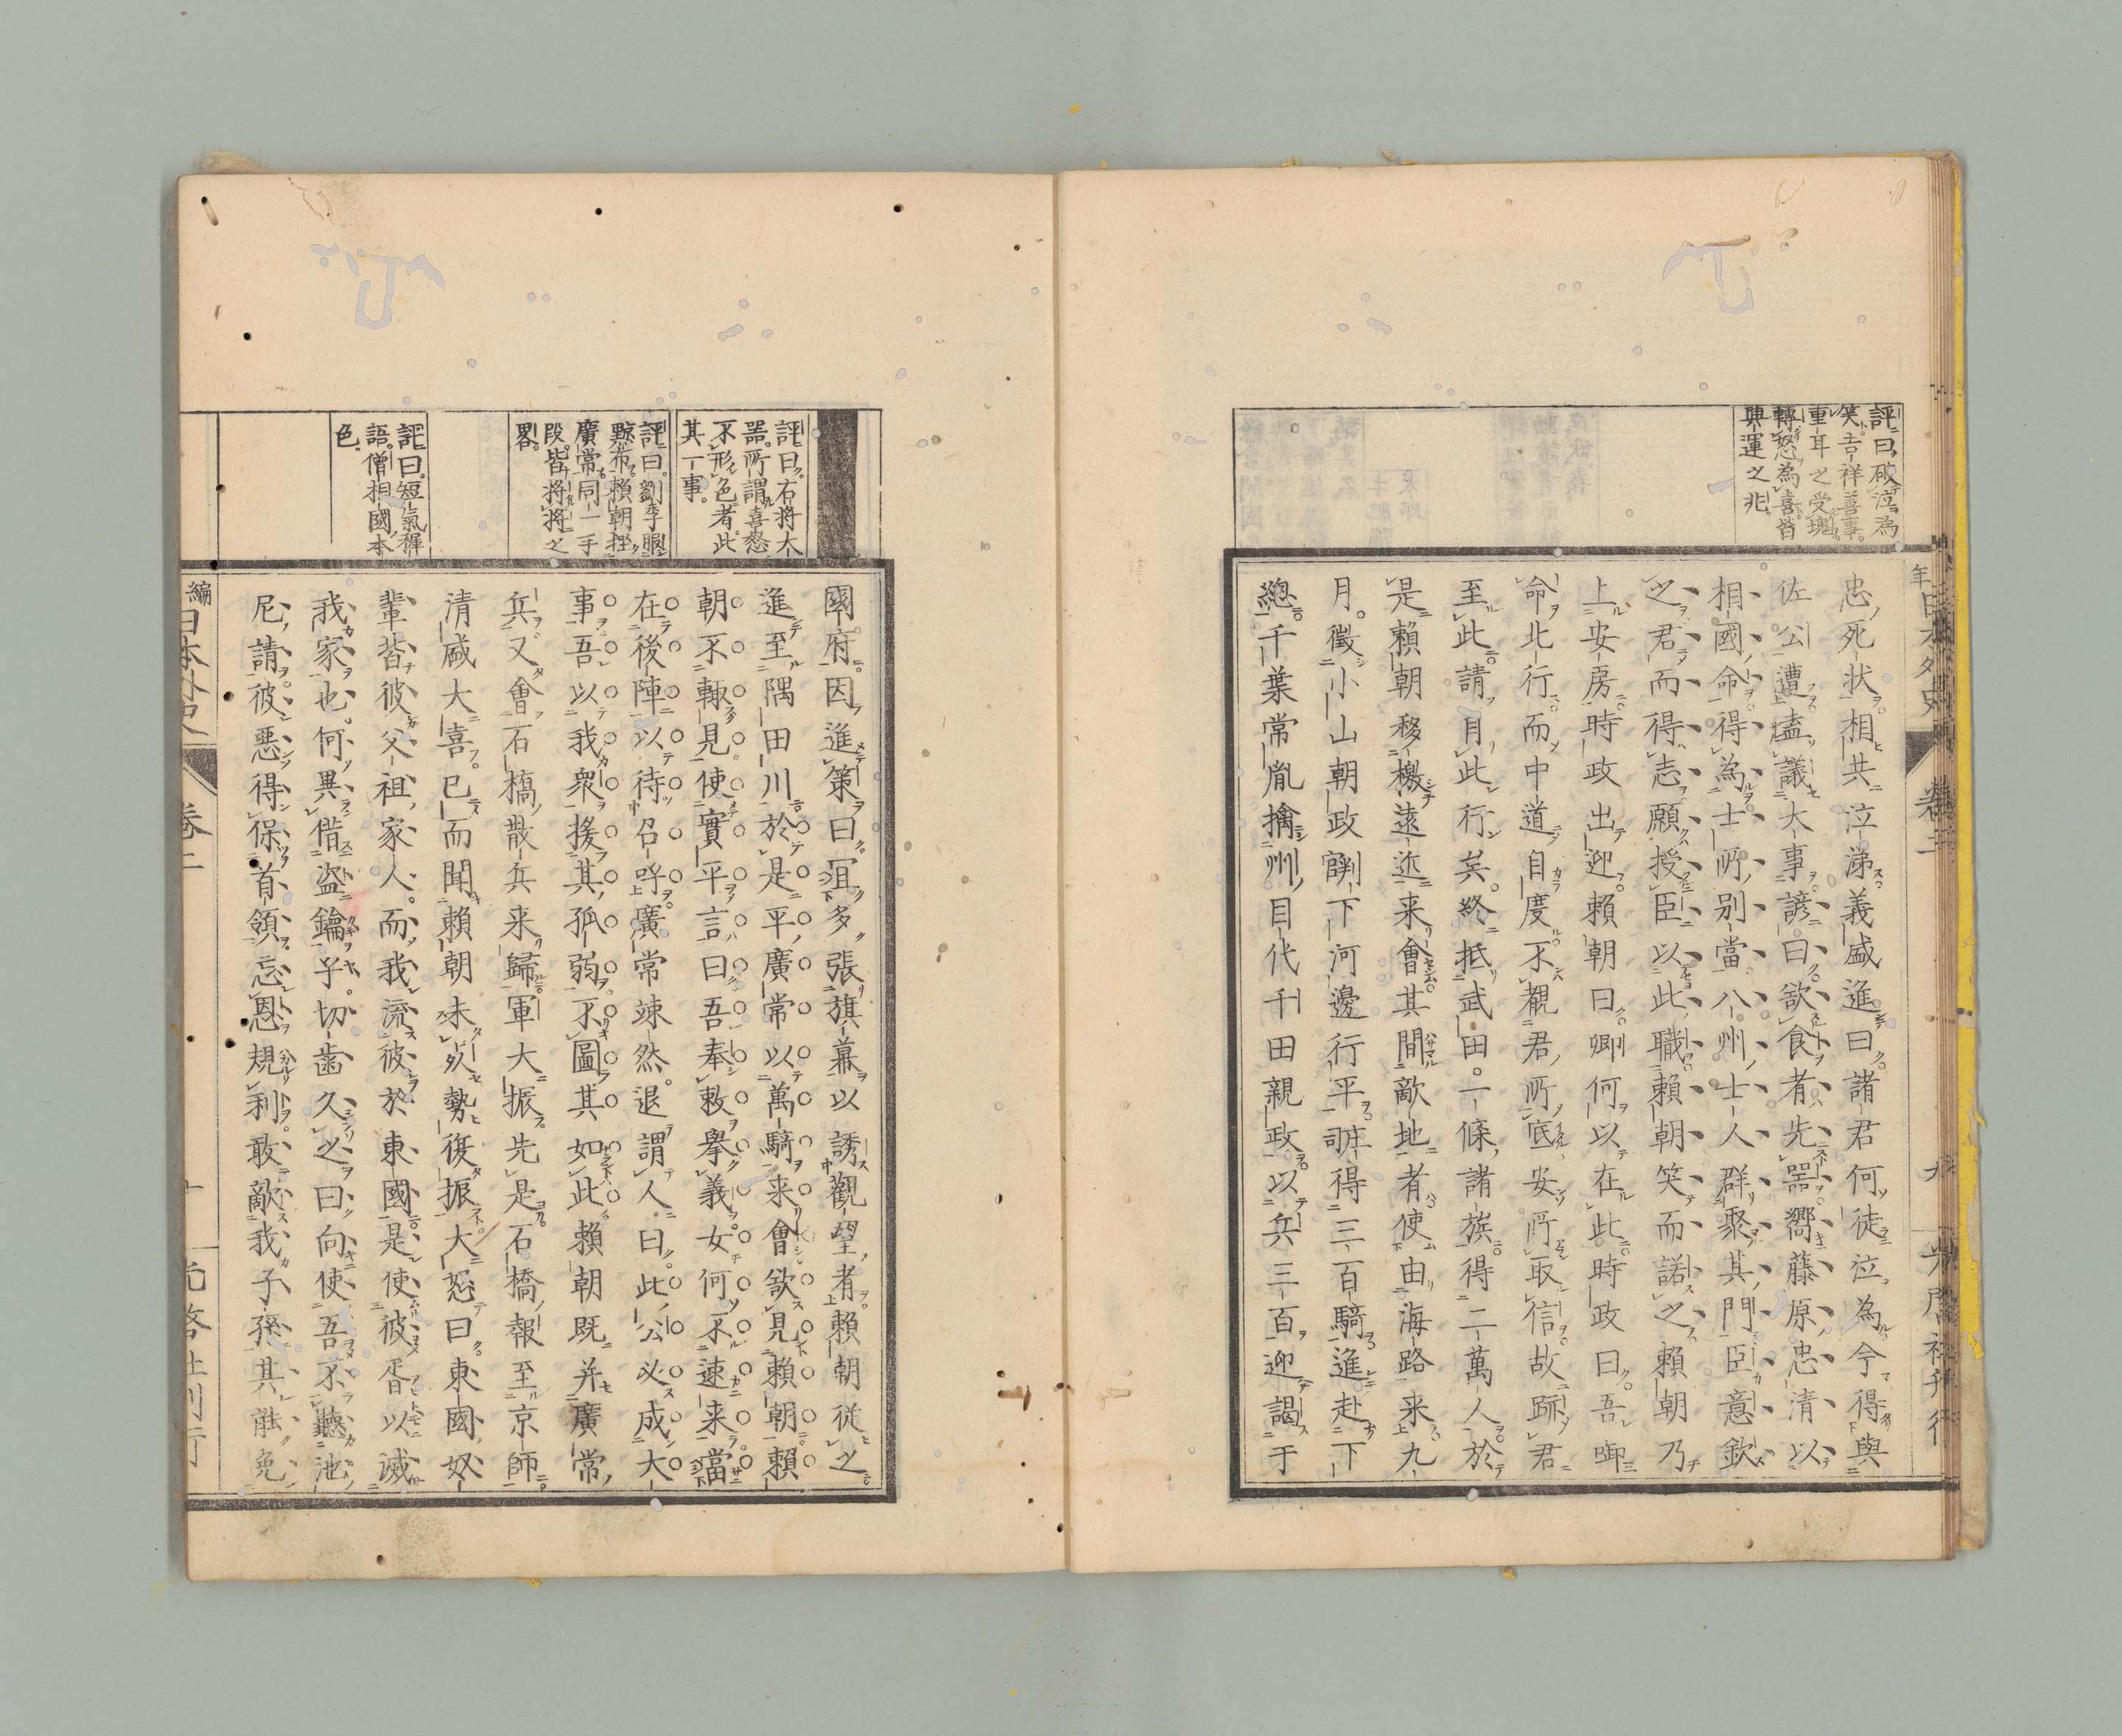 評曰破泣為
笑吉祥善事
重耳之受塊
轉怒為喜皆
興運之兆
忠死状相共泣涕義盛進曰諸君何徒泣為今得與
佐公遭盍議大事諺曰欲食者先器嚮藤原忠清以
相國命得為士所別當八州士人群聚其門臣意欽
之君而得志願授臣以此職賴朝笑而諾之賴朝乃
上安房時政出迎賴朝曰卿何以在此時政曰吾啣
命北行而中道自度不覩君所底安所取信故跡君
至此請自此行矣終抵武田一條諸族得二萬人於
是賴朝移檄遠近来會其間敵地者使由海路来九
月徵小山朝政下河邊行平得三百騎進赴下
總千葉常胤擒州目代千田親政以兵三百迎謁于
評曰右将大
器所謂喜怒
不形色者此
其一事
評曰劉季
黥布賴朝
廣常同一手
段皆将将之
畧
評曰短氣
語僧相國本
色
國府因進策曰多張旗幕以誘觀望者賴朝從之
進至隅田川於是平廣常以萬騎来會欲見賴朝賴
朝不輙見使實平言曰吾奉敕擧義女何不速来當
在後陣以待召呼廣常竦然退謂人曰此公必成大
事吾以我衆援其孤弱不圖其如此賴朝既并廣常
兵又會石橋散兵来歸軍大振先是石橋報至京師
清盛大喜已而聞賴朝未死勢復振大怒曰東國奴
輩皆彼父祖家人而我流彼於東國是使彼胥以滅
我家也何異借盜鑰子切歯久之曰向使吾不聽池
尼請彼惡得保首領忘恩規利敢敵我子孫其能免
編
卷二